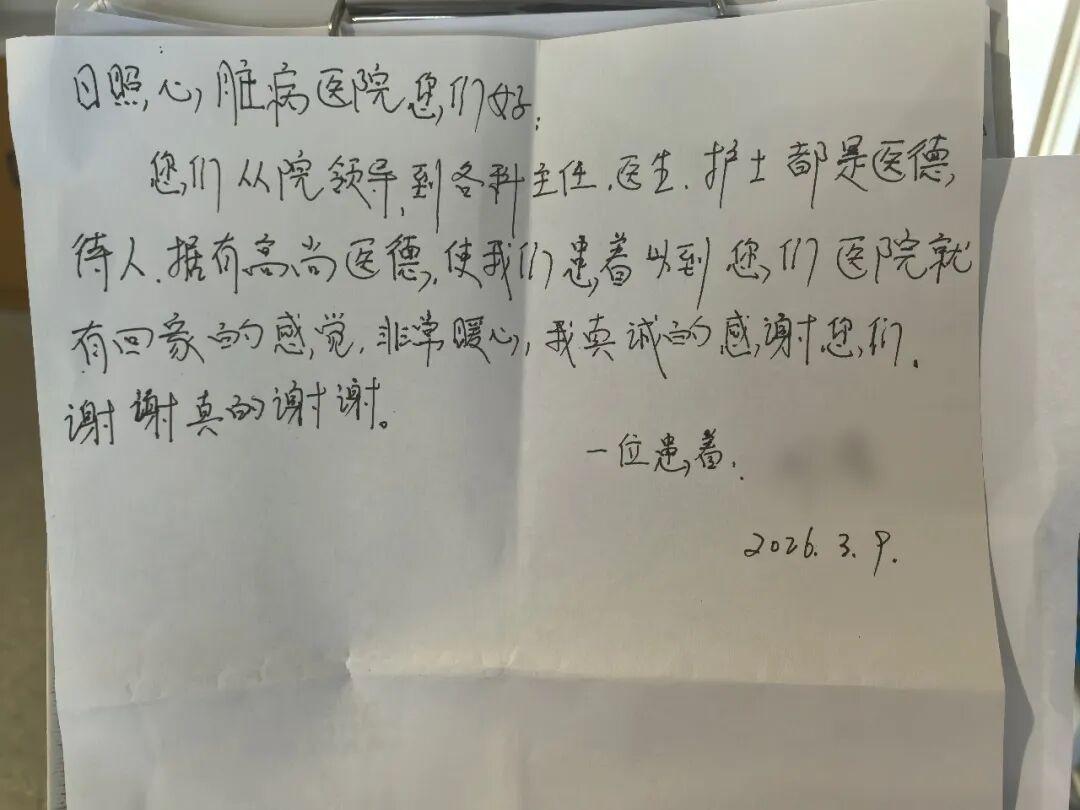 日照心脏病医院您们好:
您们从院领导,到各科主任.医生.护士都是医德,
待人.据有高尚医德,使我们患着从到您们医院就
有回家的感觉.非常暖心,我真诚的感谢您们.
谢谢真的谢谢。
一位患着.
2026.3.9.